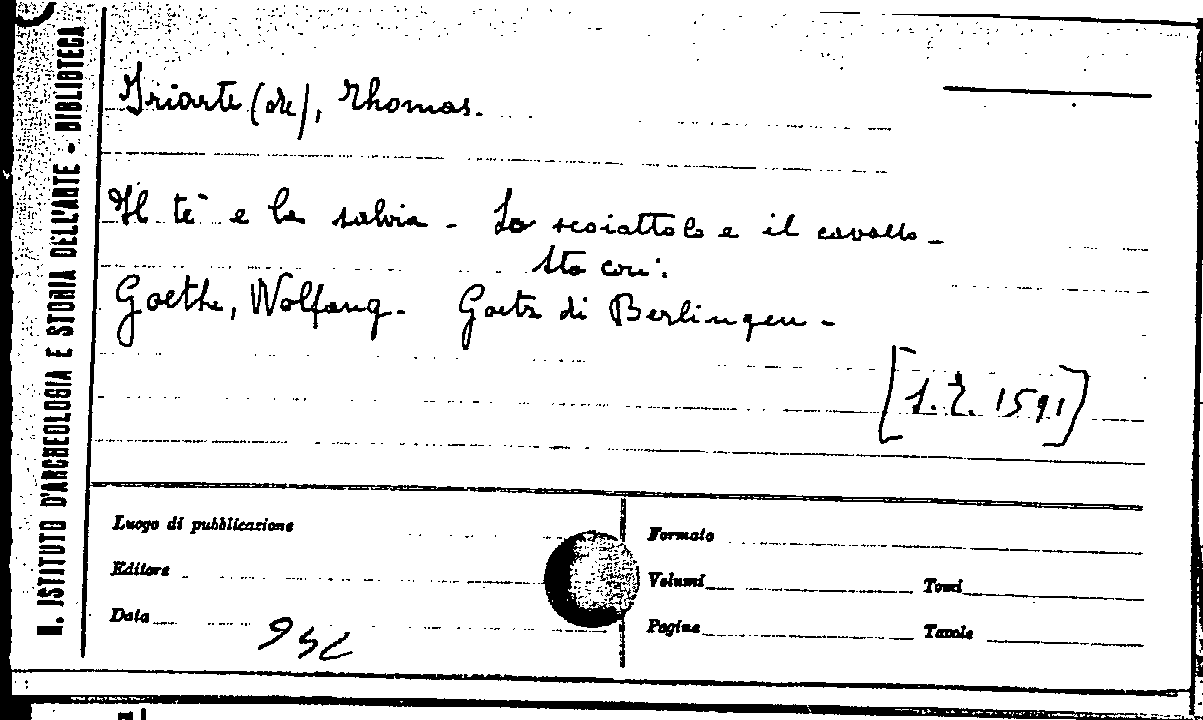 R. ISTITUTO D'ARCHEOLOGIA E STORIA DELL'ARTE - BIBLIOTECA
Iriarte (de), Thomas.
Il tè e la salvia - Lo scoiattolo e il cavallo -
Sta con:
Goethe, Wolfang. Goetz di Berlingen -
[1. 2. 1591]
Luogo di pubblicazione
Editore
Data
Formato
Volumi
Tomi
Pagine
Tavole